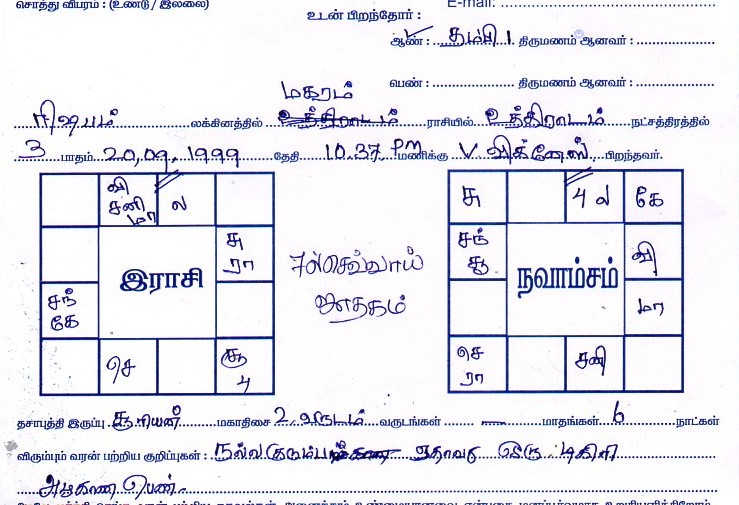 சொத்து விபரம் : (உண்டு / இல்லை)
E-mail:
உடன் பிறந்தோர் :
ஆண் : தம்பி 1 திருமணம் ஆனவர் :
பெண் : திருமணம் ஆனவர் :
மகரம்
ரிஷபம் லக்கினத்தில் உத்திராடம் ராசியில் உத்திராடம் நட்சத்திரத்தில்
3 பாதம் 20,09,1999 தேதி 10.37 PM மணிக்கு V. விக்னேஸ் பிறந்தவர்.
வி சனி மா
ல
சு ரா
சந் கே
செ
சூ பு
இராசி
7ல் செவ்வாய்
ஜாதகம்
சு
4 ல
கே
சந் சூ
வி
மா
செ ரா
சனி
நவாம்சம்
தசாபுத்தி இருப்பு சூரியன் மகாதிசை 2 வருடம் வருடங்கள் — மாதங்கள் 6 நாட்கள்
விரும்பும் வரன் பற்றிய குறிப்புகள் : நல்ல குடும்பம் ஏதாவது ஒரு டிகிரி
அழகான பெண்.